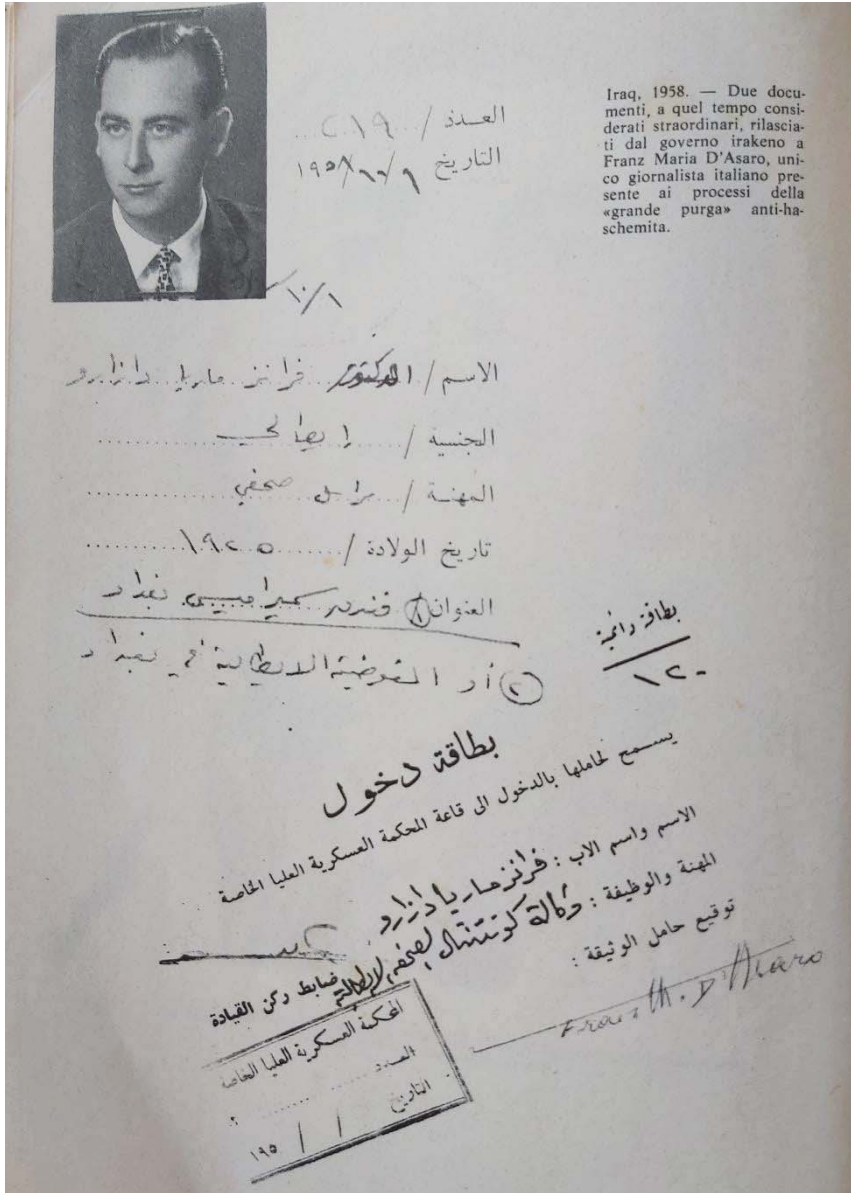 Iraq, 1958. — Due docu-
menti, a quel tempo consi-
derati straordinari, rilascia-
ti dal governo irakeno a
Franz Maria D'Asaro, uni-
co giornalista italiano pre-
sente ai processi della
«grande purga» anti-ha-
schemita.
العدد / ٢١٩
التاريخ ١٩٥٨/١١/٩
١٠/١
الاسم / الدكتور فرانز ماريا دازارو
الجنسية / ايطالي
المهنة / مراسل صحفي
تاريخ الولادة / ١٩٢٥
العنوان ١ فندق سميراميس بغداد
٢ أو المفوضية الايطالية في بغداد
بطاقة دائمية
١٢٠
بطاقة دخول
يسمح لحاملها بالدخول الى قاعة المحكمة العسكرية العليا الخاصة
الاسم واسم الاب : فرانز ماريا دازارو
المهنة والوظيفة : وكالة كونتننتال الصحفية الايطالية
توقيع حامل الوثيقة :
Franz M. D'Asaro
ضابط ركن القيادة
المحكمة العسكرية العليا الخاصة
العدد
التاريخ / / ١٩٥